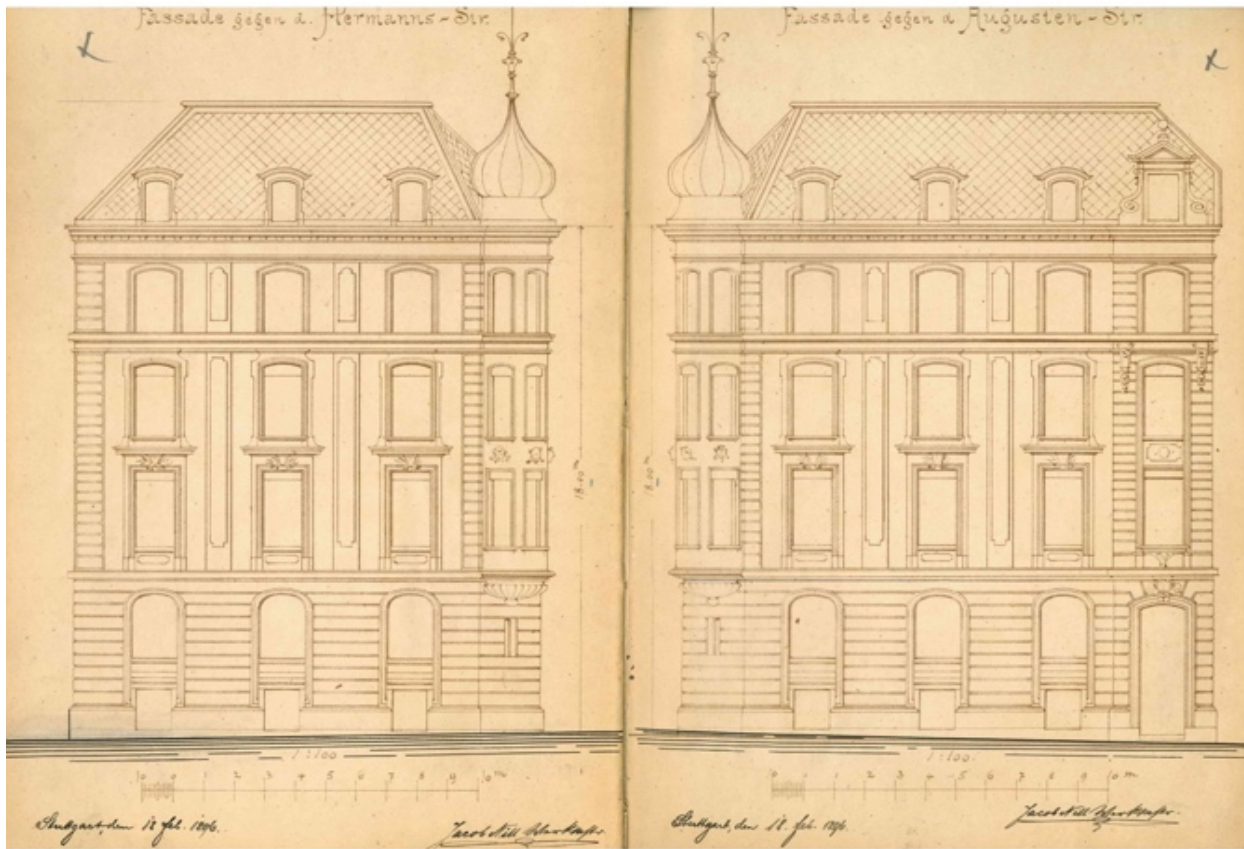 Fassade gegen d. Hermanns-Str.
18.00 m
1:100
10 0 1 2 3 4 5 6 7 8 9 10 m
Stuttgart, den 18. Feb. 1896.
Jacob Nill
Fassade gegen d Augusten-Str.
18.00 m
1:100.
10 0 1 2 3 4 5 6 7 8 9 10 m
Stuttgart, den 18. Feb. 1896.
Jacob Nill